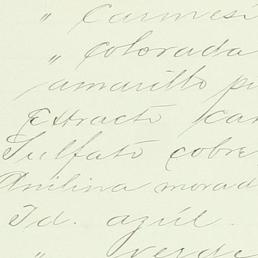 " Carmesí
" Colorada
amarillo pu
Extracto car
Sulfato cobre
Anilina morad
Id. azúl.
" verde